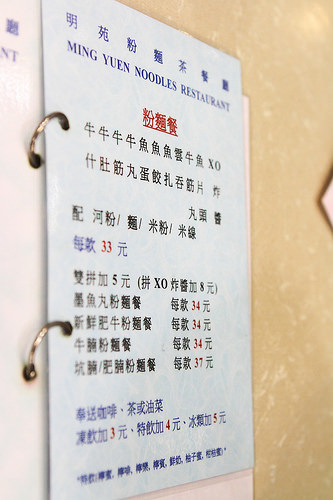 明苑粉麵茶餐廳
MING YUEN NOODLES RESTAURANT
粉麵餐
牛牛牛牛魚魚魚雲牛魚 XO
什肚筋丸蛋餃扎吞筋片 炸
丸頭 醬
配 河粉/ 麵/ 米粉/ 米線
每款 33 元
雙拼加 5 元 (拼 XO 炸醬加 8 元)
墨魚丸粉麵餐 每款 34 元
新鮮肥牛粉麵餐 每款 34 元
牛腩粉麵餐 每款 34 元
坑腩/肥腩粉麵餐 每款 37 元
奉送咖啡、茶或油菜
凍飲加 3 元、特飲加 4 元、冰類加 5 元
*特飲(檸蜜, 檸啡, 檸樂, 檸賓, 鮮奶, 柚子蜜, 柑桔蜜)*
廳
NT